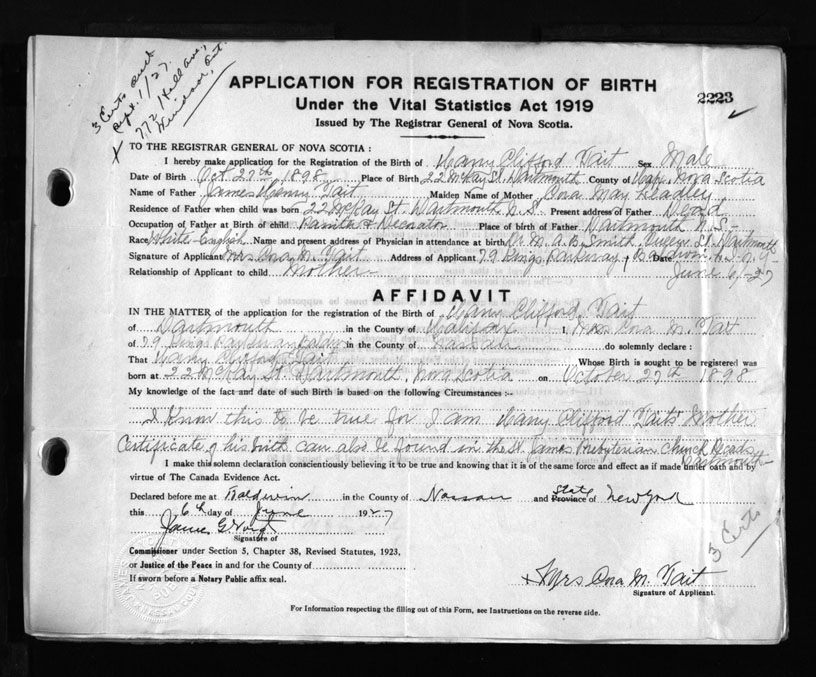 3 Certs sent
Sept. 1/27.
772 Hall Ave,
Windsor, Ont.
X
APPLICATION FOR REGISTRATION OF BIRTH
Under the Vital Statistics Act 1919
Issued by The Registrar General of Nova Scotia.
2223
TO THE REGISTRAR GENERAL OF NOVA SCOTIA :
I hereby make application for the Registration of the Birth of Harry Clifford Tait Sex Male
Date of Birth Oct 27th 1898 Place of Birth 22 McKay St. Dartmouth County of Hafx. Nova Scotia
Name of Father James Henry Tait Maiden Name of Mother Ora May Headley
Residence of Father when child was born 22 McKay St. Dartmouth N.S. Present address of Father Dead
Occupation of Father at Birth of child Painter & Decorator Place of birth of Father Dartmouth N.S.
Race White-English Name and present address of Physician in attendance at birth Dr. M. A. B. Smith, Queen St. Dartmouth
Signature of Applicant Mrs Ora M. Tait Address of Applicant 79 Kings Parkway, Baldwin Date L.I. N.Y.
Relationship of Applicant to child Mother June 6/-27
AFFIDAVIT
IN THE MATTER of the application for the registration of the Birth of Harry Clifford Tait
of Dartmouth in the County of Halifax I, Mrs Ora M. Tait
of 79 Kings Parkway Baldwin in the County of Nassau do solemnly declare :
That Harry Clifford Tait Whose Birth is sought to be registered was
born at 22 McKay St. Dartmouth, Nova Scotia on October 27th 1898
My knowledge of the fact and date of such Birth is based on the following Circumstances :-
I know this to be true for I am Harry Clifford Taits Mother
Certificate of his birth can also be found in the St. James Presbyterian Church Reads
Dartmouth-
I make this solemn declaration conscientiously believing it to be true and knowing that it is of the same force and effect as if made under oath and by
virtue of The Canada Evidence Act.
Declared before me at Baldwin in the County of Nassau and State Province of New York
this 6th day of June 1927
James G Voigt
Signature of
Commissioner under Section 5, Chapter 38, Revised Statutes, 1923,
or Justice of the Peace in and for the County of
If sworn before a Notary Public affix seal.
3 Certs
Mrs Ora M. Tait
Signature of Applicant.
For Information respecting the filling out of this Form, see Instructions on the reverse side.